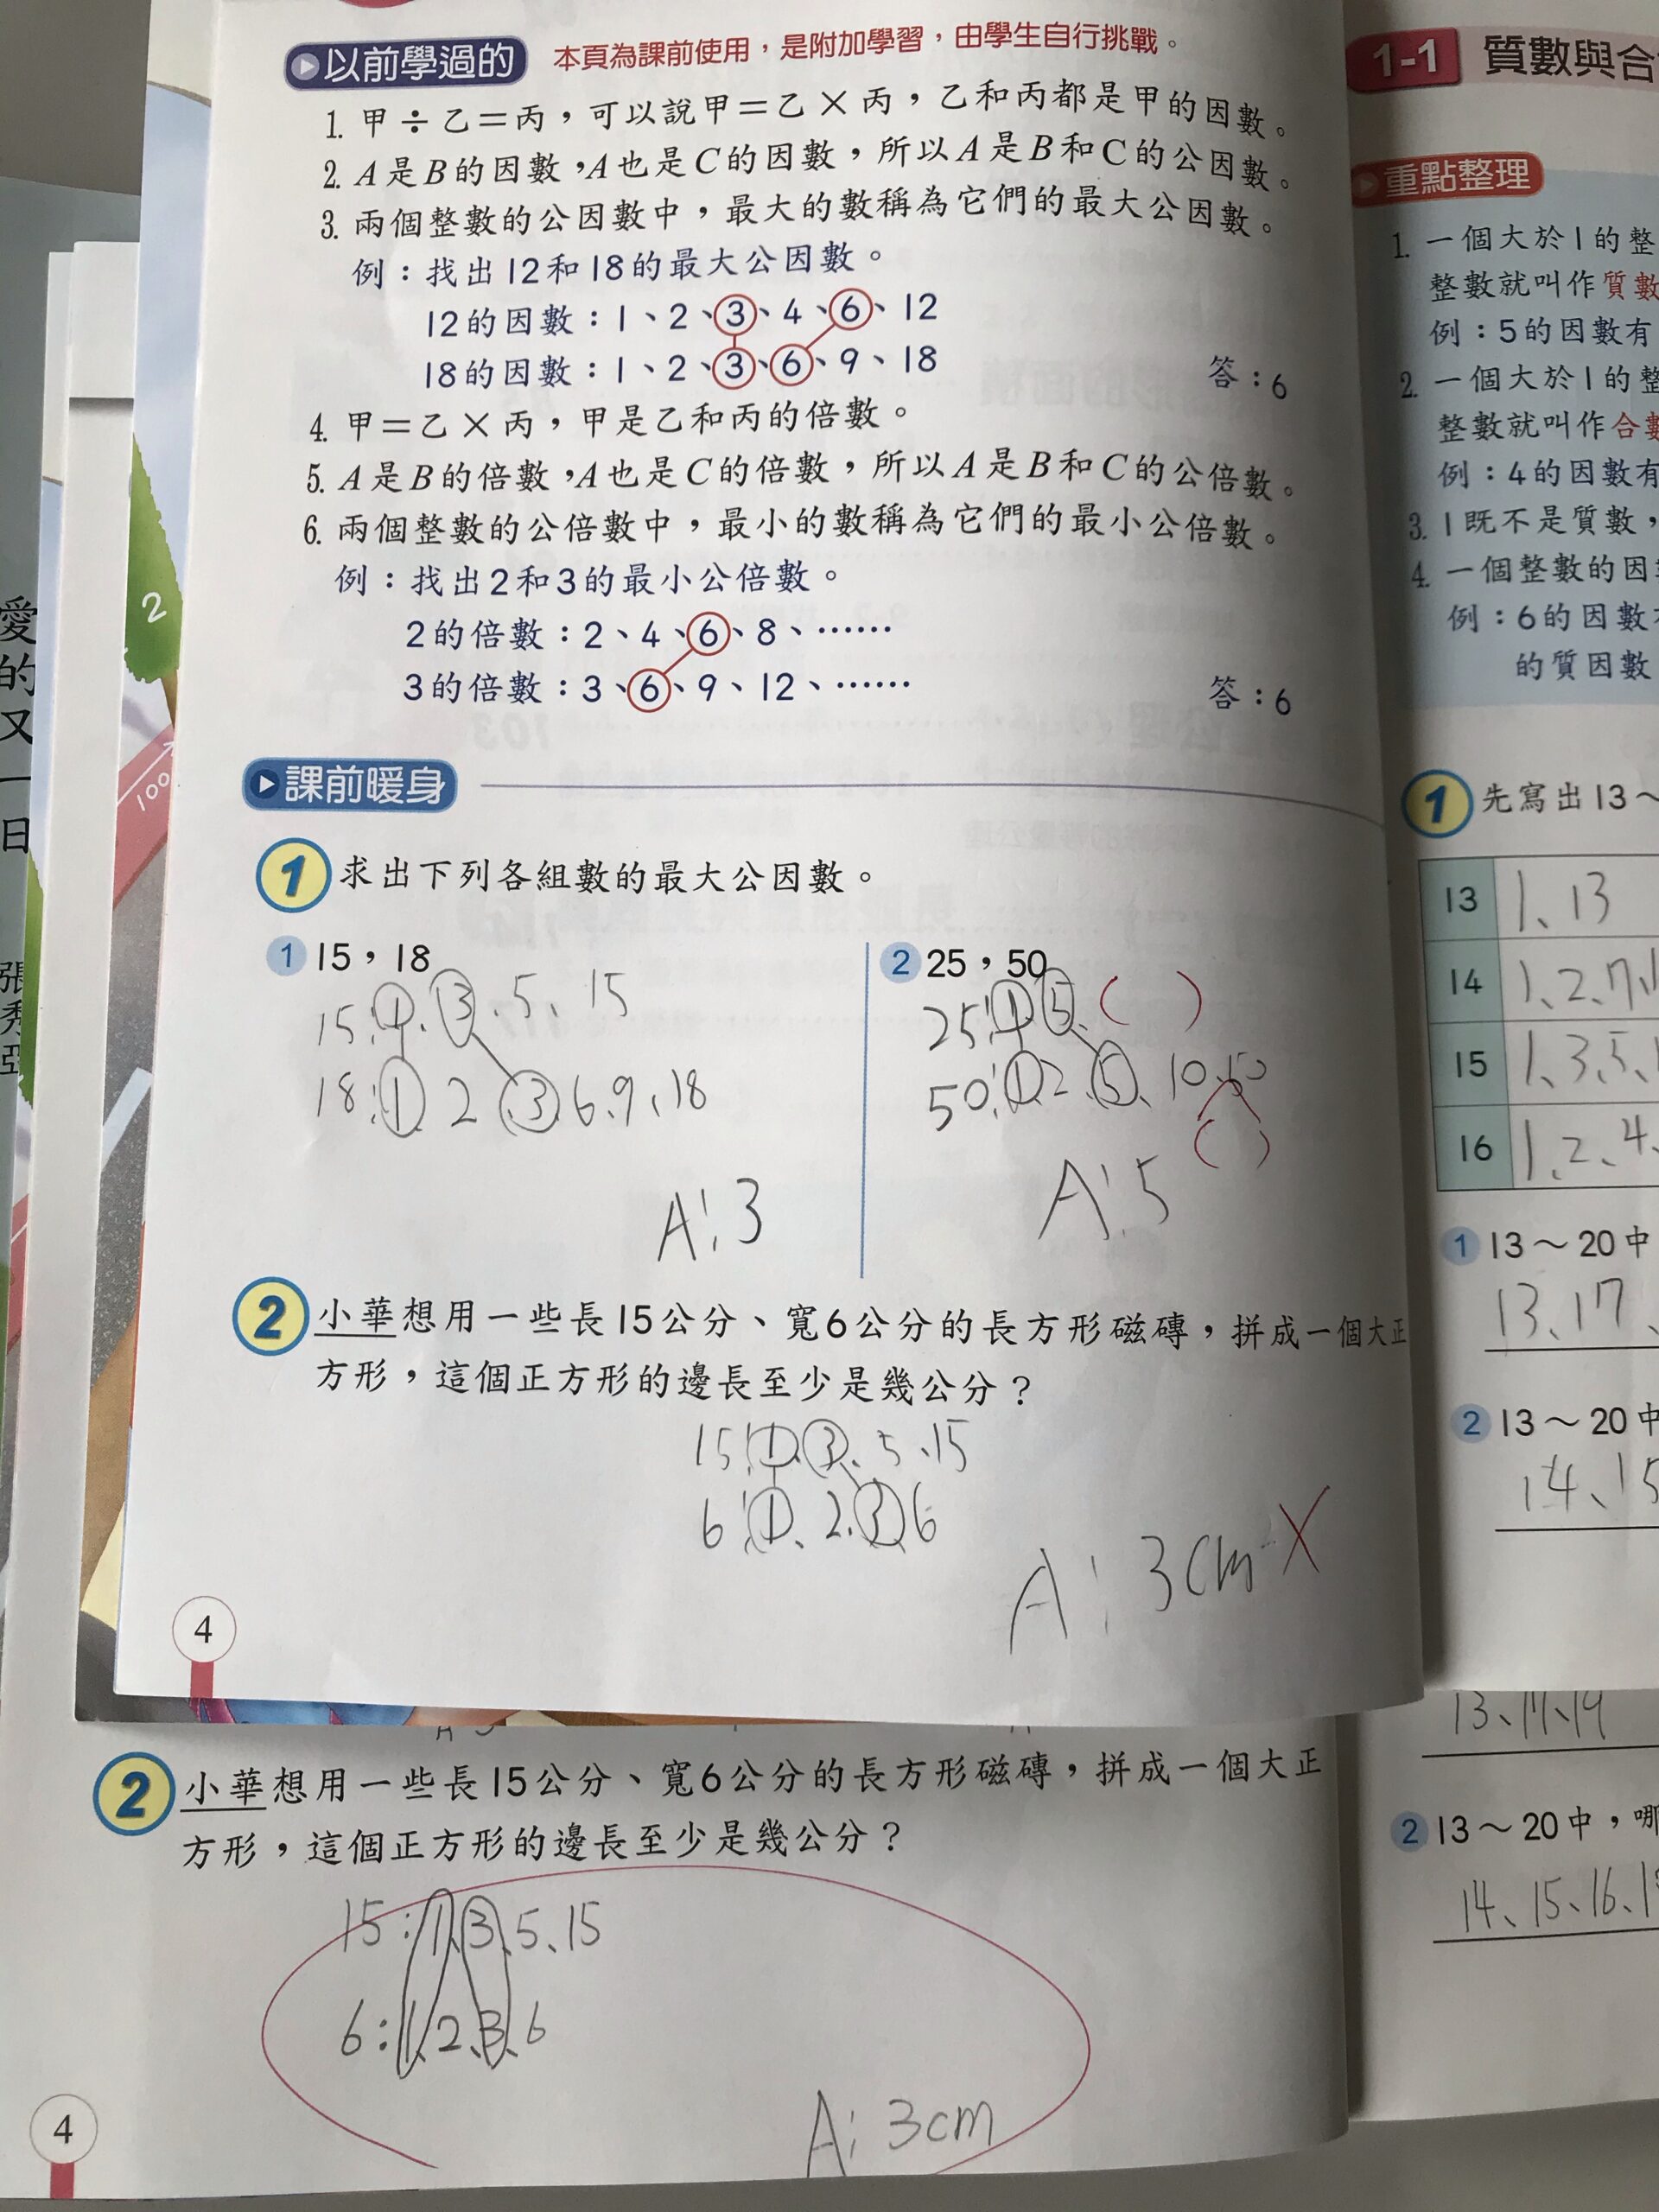 以前學過的 本頁為課前使用，是附加學習，由學生自行挑戰。
1. 甲÷乙＝丙，可以說甲＝乙×丙，乙和丙都是甲的因數。
2. A是B的因數，A也是C的因數，所以A是B和C的公因數。
3. 兩個整數的公因數中，最大的數稱為它們的最大公因數。
例：找出12和18的最大公因數。
12的因數：1、2、3、4、6、12
18的因數：1、2、3、6、9、18 答：6
4. 甲＝乙×丙，甲是乙和丙的倍數。
5. A是B的倍數，A也是C的倍數，所以A是B和C的公倍數。
6. 兩個整數的公倍數中，最小的數稱為它們的最小公倍數。
例：找出2和3的最小公倍數。
2的倍數：2、4、6、8、……
3的倍數：3、6、9、12、…… 答：6
課前暖身
1 求出下列各組數的最大公因數。
1 15，18
15:1、3、5、15
18:1、2、3、6、9、18
A:3
2 25，50
25:1、5、( )
50:1、2、5、10、50
( )
A:5
2 小華想用一些長15公分、寬6公分的長方形磁磚，拼成一個大正
方形，這個正方形的邊長至少是幾公分？
15:1、3、5、15
6:1、2、3、6
A:3cm
4
2 小華想用一些長15公分、寬6公分的長方形磁磚，拼成一個大正
方形，這個正方形的邊長至少是幾公分？
15:1、3、5、15
6:1、2、3、6
A:3cm
4
1-1 質數與合
重點整理
1. 一個大於1的整
整數就叫作質數
例：5的因數有
2. 一個大於1的整
整數就叫作合數
例：4的因數有
3. 1既不是質數，
4. 一個整數的因
例：6的因數
的質因數
1 先寫出13～
13 1、13
14 1、2、7、
15 1、3、5、
16 1、2、4、
1 13～20中
13、17、
2 13～20中
14、15
13、17、19
2 13～20中，哪
14、15、16、
愛的又一日
張秀亞
2
100